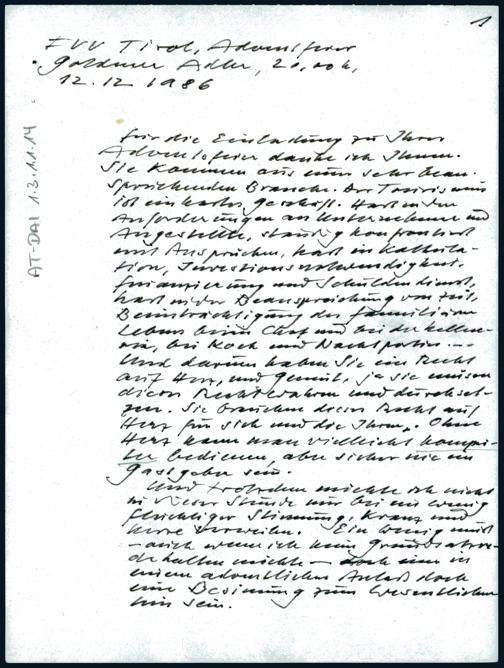 1
FVV Tirol, Adventfeier
Goldener Adler, 20,00 h,
12.12 1986
AT-DAI 1.3.1.1.14
Für die Einladung zu Ihrer
Adventsfeier danke ich Ihnen.
Sie kommen aus einer sehr bean-
spruchenden Branche. Der Tourismus
ist ein hartes Geschäft. Hart in den
Anforderungen an Unternehmer und
Angestellte, ständig konfrontiert
mit Ansprüchen, hart in Kalkula-
tion, Investitionsnotwendigkeit,
Finanzierung und Schuldendienst,
hart in der Beanspruchung von Zeit,
Beeinträchtigung des familiären
Lebens beim Chef und bei der Kellne-
rin, bei Koch und Nachtportier ...
Und darum haben Sie ein Recht
auf Herz, und Gemüt, ja Sie müssen
dieses Recht wahren und durchset-
zen. Sie brauchen dieses Recht auf
Herz für sich und die Ihren. Ohne
Herz kann man vielleicht Computer
bedienen, aber sicher nie ein
Gastgeber sein.
Und trotzdem möchte ich nicht
in dieser Stunde nur bei ein wenig
flüchtiger Stimmung, Kranz und
Kerze verweilen. Ein wenig muß
- auch wenn ich keine Grundsatzre-
de halten möchte - doch nun in
einem adventlichen Anlaß doch
eine Besinnung zum Wesentlichen
hin sein.